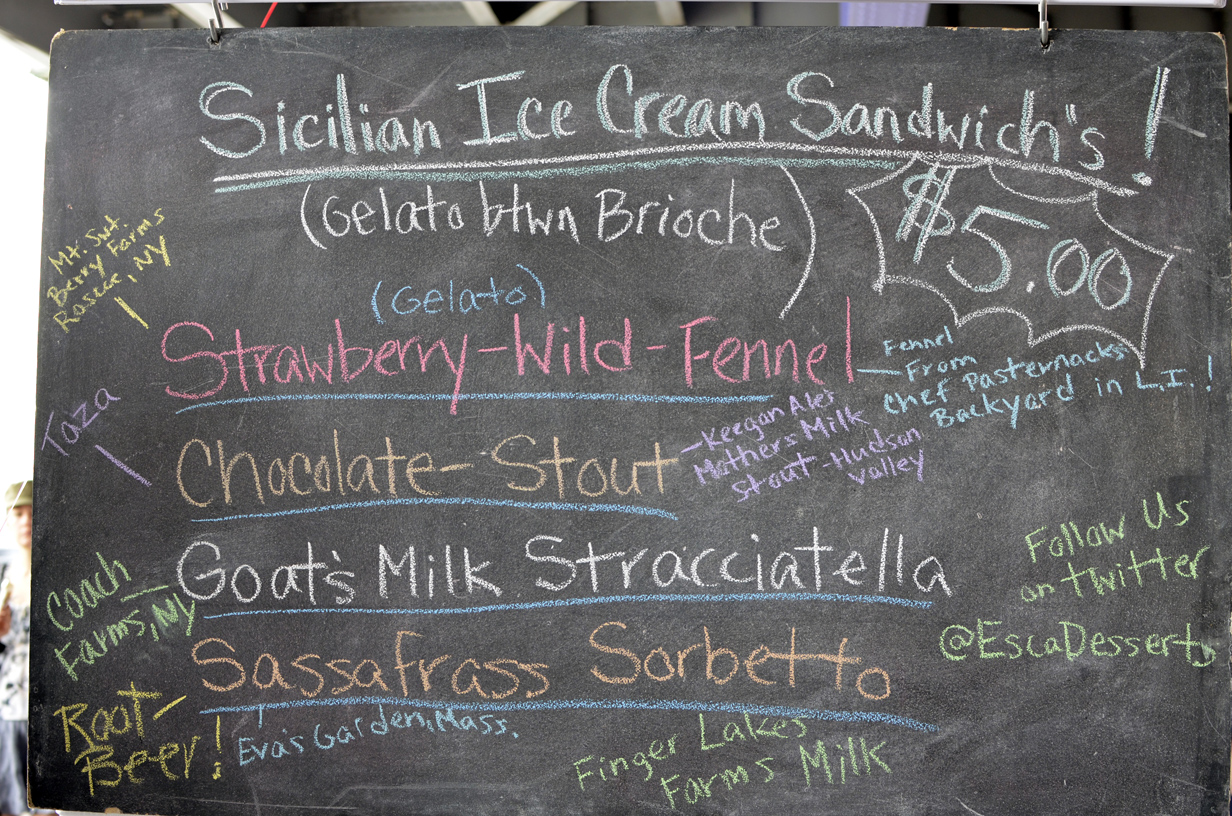 Sicilian Ice Cream Sandwich's!
(Gelato btwn Brioche)
$5.00
Mt. Swt.
Berry Farms
Roscoe, NY
(Gelato)
Strawberry-Wild-Fennel
Fennel
From
Chef Pasternacks
Backyard in L.I.!
Taza
Chocolate-Stout
Keegan Ales
Mothers Milk
Stout-Hudson
Valley
Coach
Farms, NY
Goat's Milk Stracciatella
Follow Us
on twitter
@EscaDesserts
Sassafrass Sorbetto
Root
Beer!
Eva's Garden, Mass.
Finger Lakes
Farms Milk